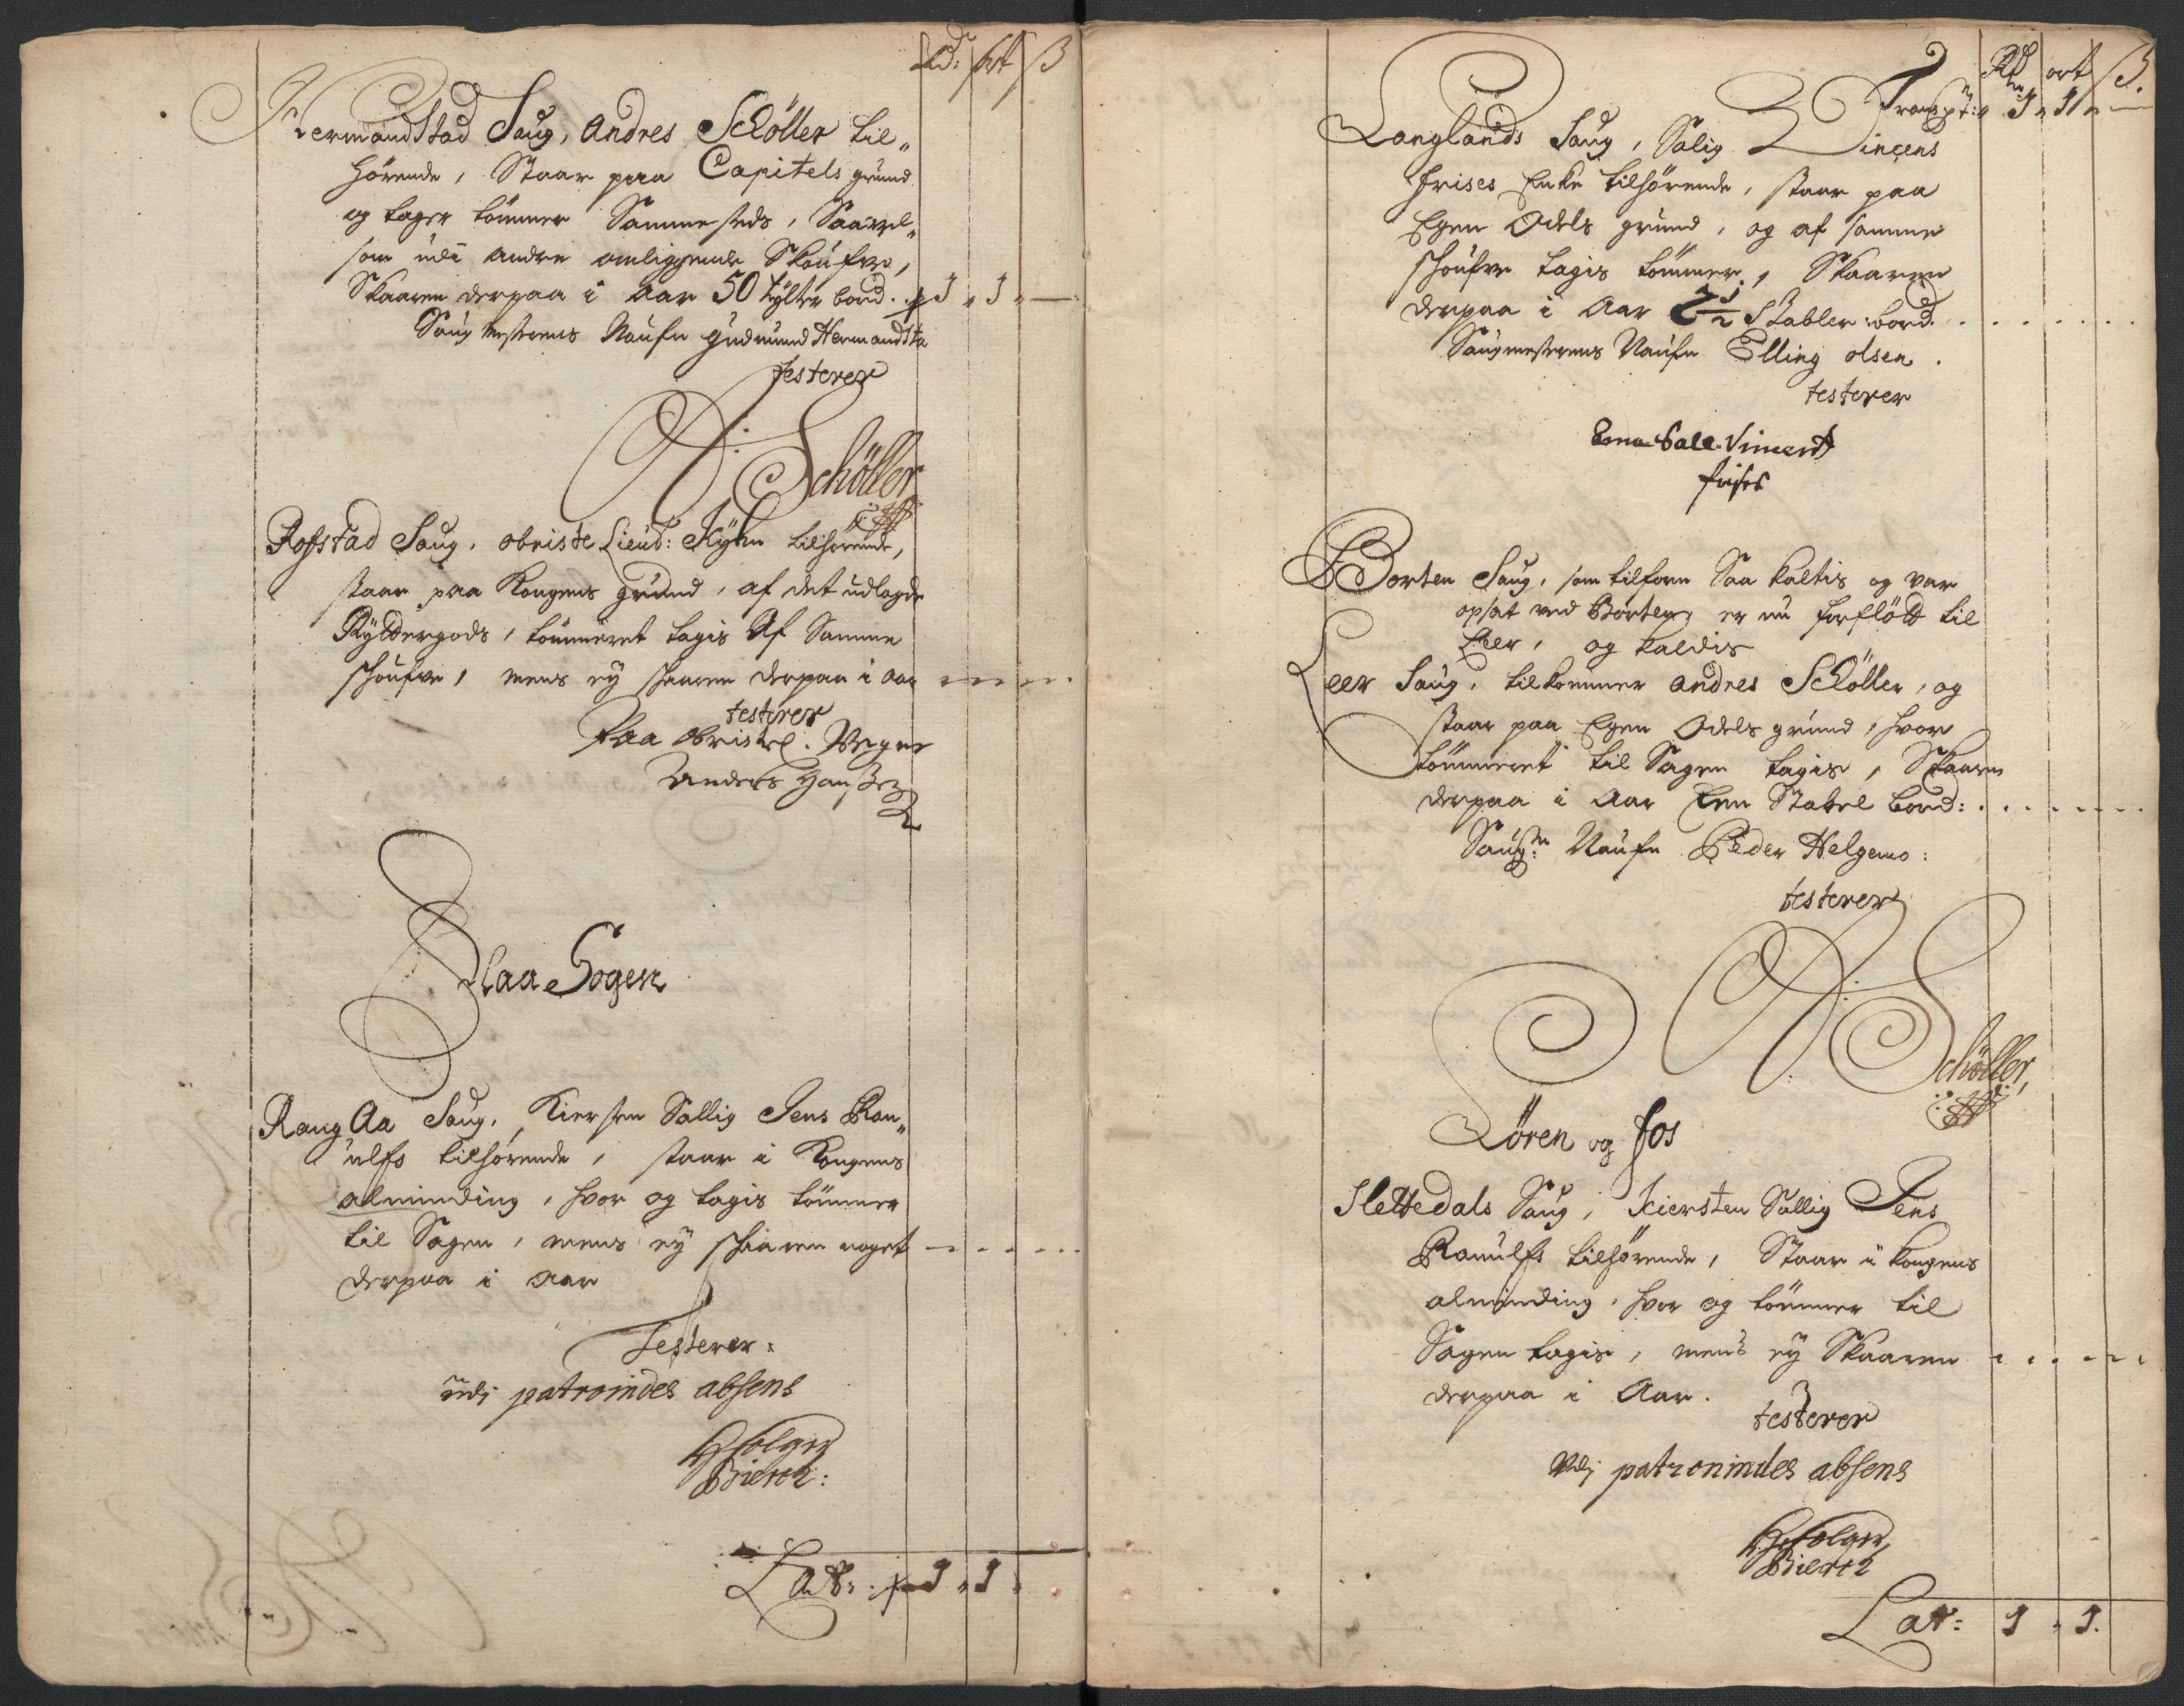 Rd: ort ß
Hermandstad Saug, Andres Schöller til„
hörende, Staar paa Capitels grund
og tager tömmer Sammesteds, Saavel„
som udi andre omliggende Skoufve,
Skaaren derpaa i Aar 50 tylter bord. 1 „ 1 „ —
Saugmesterens Naufn Gudmund Hermandsta
testerer
A Schöller
Rofstad Saug, obriste Lieut: Kyhn tilhörende,
staar paa Kongens grund, af det udlagde
Rytttergods, tömmeret tagis Af Samme
schoufve, mens ey skaaren derpaa i aar
testerer
Paa Obristl. Vegne
Anders Hanßen
Flaa Sogen
Raug Aa Saug, Kiersten Sallig Jens Ran„
ulfs tilhörende, staar i Kongens
alminding, hvor og tagis tömmer
til Sagen, mens ey schaaren noget
derpaa i Aar
Testerer:
udj patronindes absens
Holger
Bierck:
Lat: 1 „ 1 „
Rd ort ß.
Transpt: 1 „ 1 „ —
Langlands Saug, Salig Vincens
frises Enke tilhörende, staar paa
Egen Odels grund, og af samme
schoufve tagis tömmer, Skaaren
derpaa i Aar 2½ Stabler bord.
Saugmesterens Naufn Elling olsen.
testerer
Sale Vincents
frises
Borten Saug, som tilforn Saa kaltis og var
opsat ved Borten, er nu forflött til
Leer, og kaldis
Leer Saug, tilkommer Andres Schöller, og
staar paa Egen Odels grund, hvor
tömmeret til Sagen tagis, Skaaren
derpaa i Aar Een Stabel bord:
Saugm: Naufn Peder Helgemo:
testerer
A Schöller
Lören og fos
Slettedals Saug, Kiersten Sallig Jens
Ranulfs tilhörende, Staar i Kongens
alminding, hvor og tömmer til
Sagen tagis, mens ey Skaaren
derpaa i Aar.
testerer
Udj patronindes absens
Holger
Bierck
Lat: 1 „ 1.